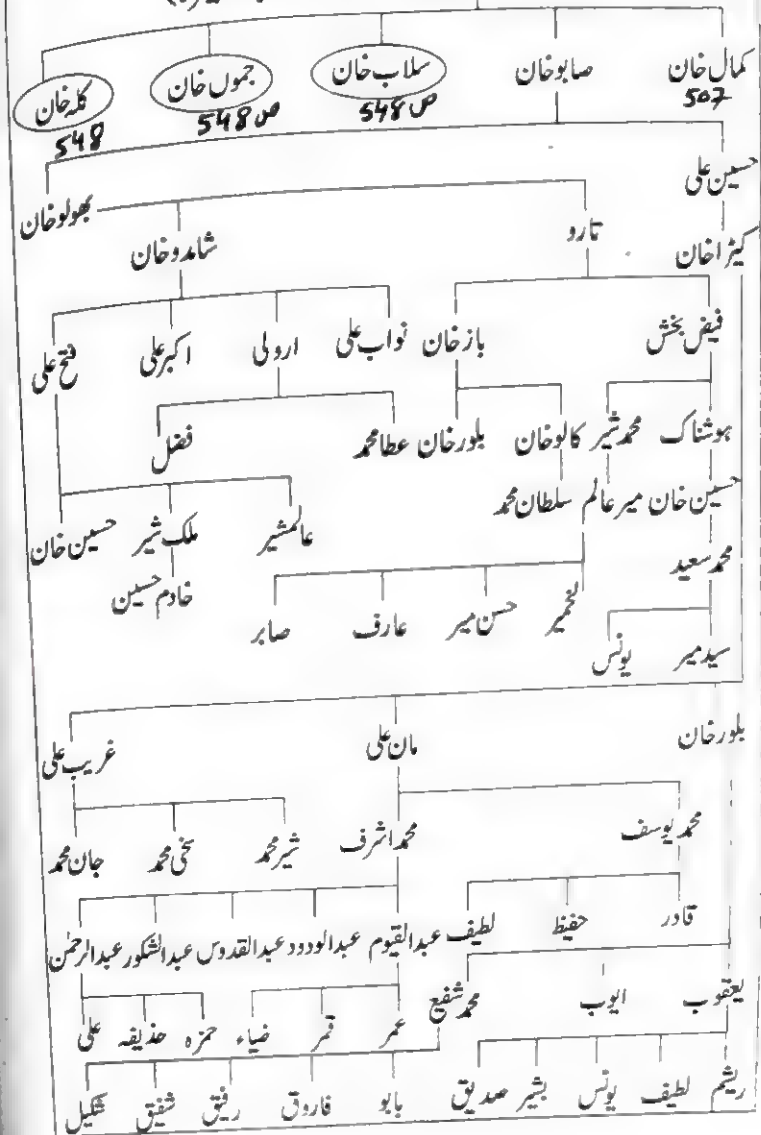 کمال خان صابو خان سلاب خان جموں خان کلہ خان
507 ص548 ص548 548
حسین علی
بھولو خان
تارو شامدو خان
کیڑا خان
فیض بخش باز خان نواب علی ارولی اکبر علی فتح علی
ہوشناک محمد شیر کالو خان بلور خان عطا محمد فضل
حسین خان میر عالم سلطان محمد عالمشیر ملک شیر حسین خان
محمد سعید خادم حسین
حسن میر عارف صابر
سید میر یونس
بلور خان مان علی غریب علی
محمد یوسف محمد اشرف شیر محمد سخی محمد جان محمد
قادر حفیظ لطیف عبدالقیوم عبدالودود عبدالقدوس عبدالشکور عبدالرحمٰن
یعقوب ایوب محمد شفیع عمر قمر ضیاء حمزہ حذیفہ علی
ریشم لطیف یونس بشیر صدیق بابو فاروق رفیق شفیق شکیل